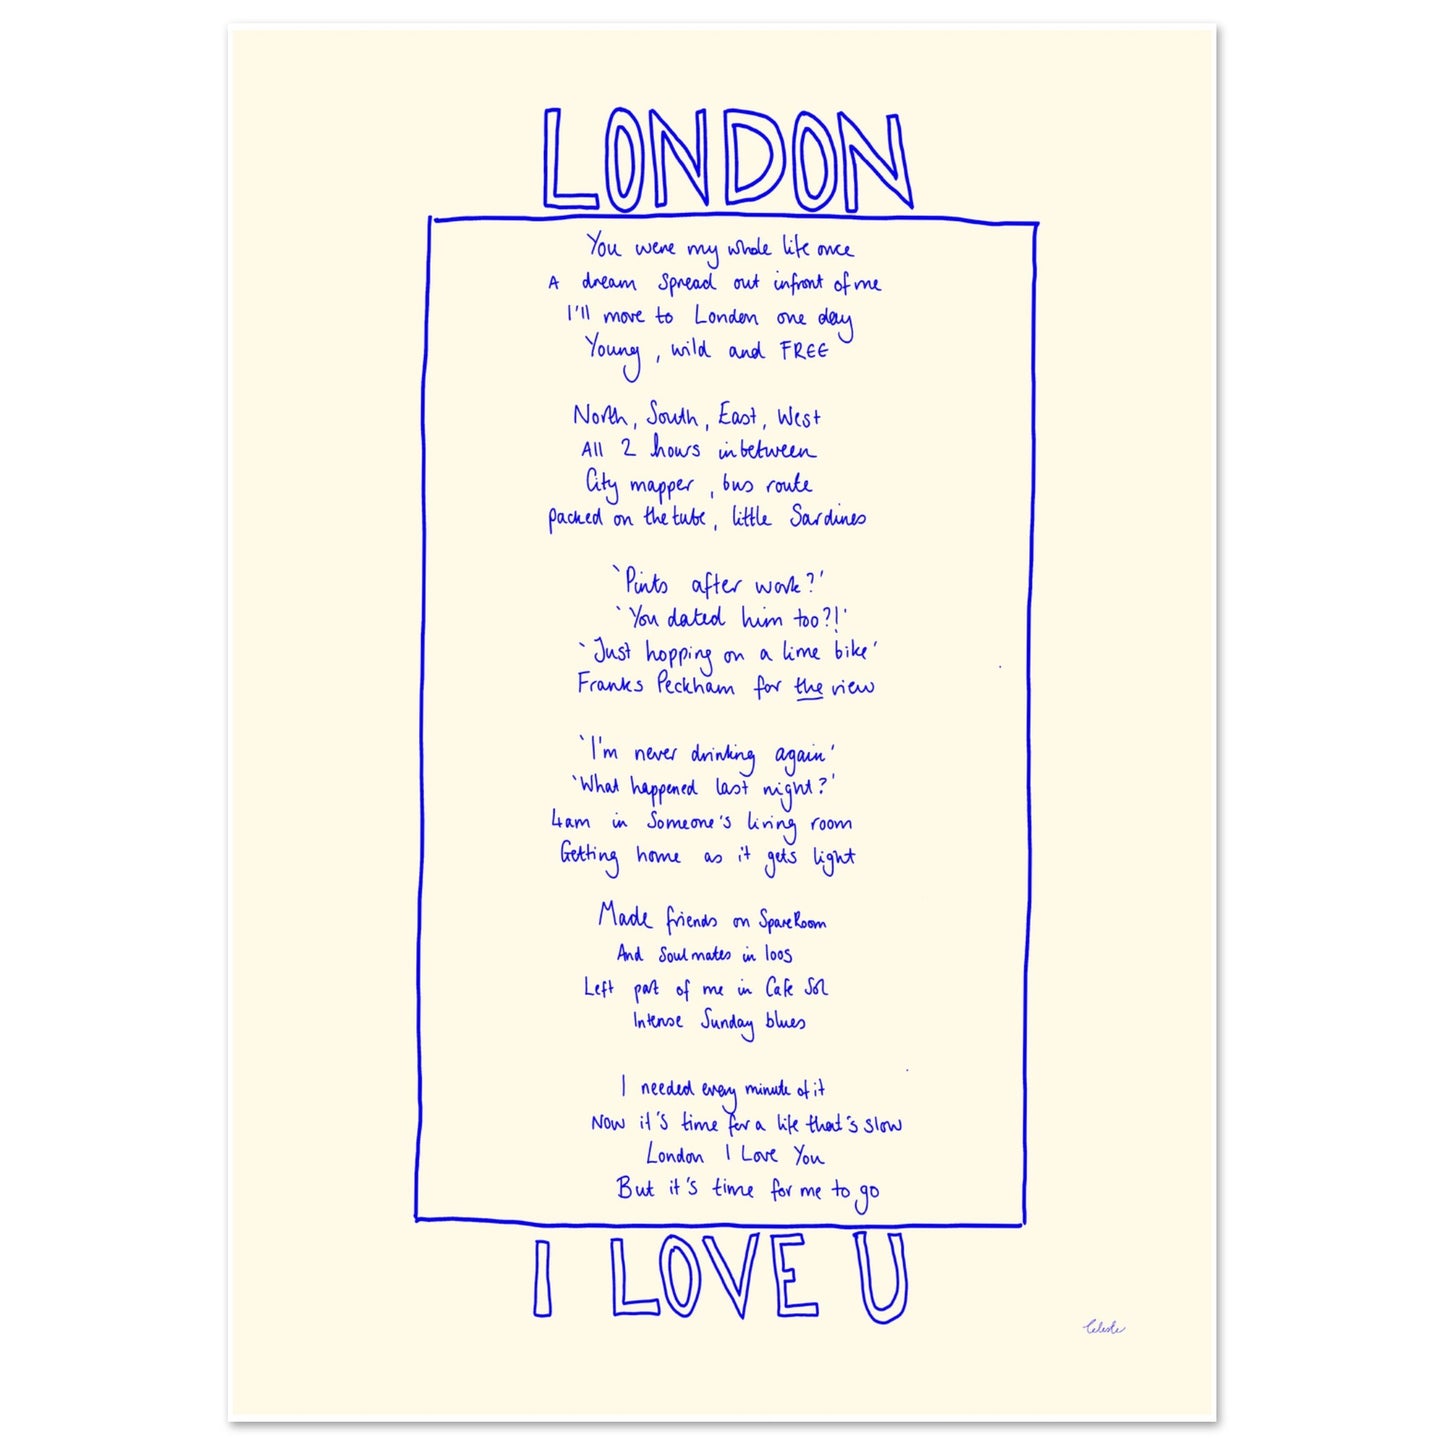 LONDON
You were my whole life once
A dream spread out infront of me
I'll move to London one day
Young, wild and FREE
North, South, East, West
All 2 hours inbetween
City mapper, bus route
packed on the tube, little Sardines
'Pints after work?'
'You dated him too?!'
'Just hopping on a lime bike'
Franks Peckham for the view
'I'm never drinking again'
'What happened last night?'
4am in Someone's living room
Getting home as it gets light
Made friends on SpareRoom
And Soulmates in loos
Left part of me in Cafe Sol
Intense Sunday blues
I needed every minute of it
Now it's time for a life that's slow
London I Love You
But it's time for me to go
I LOVE U
Celeste